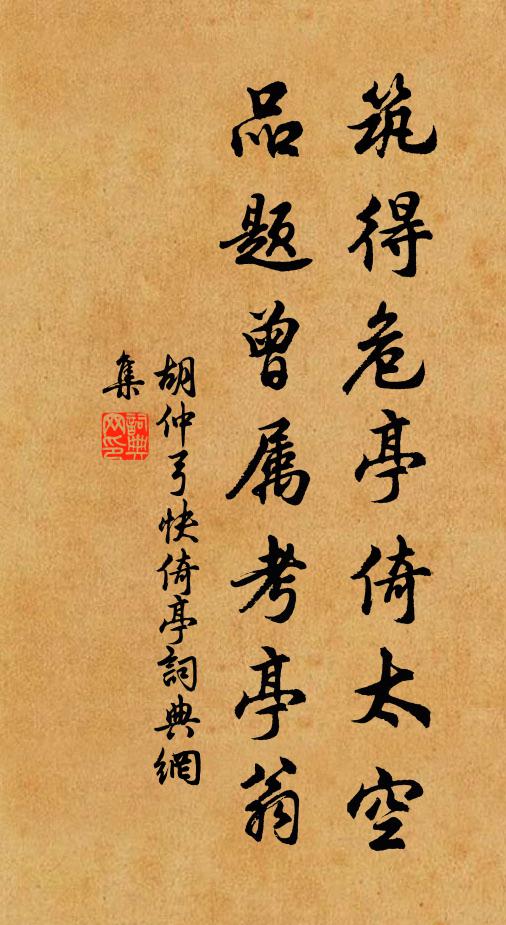 筑得危亭倚太空
品题曾属考亭翁
胡仲弓快倚亭詞典網
集
詞典
网印